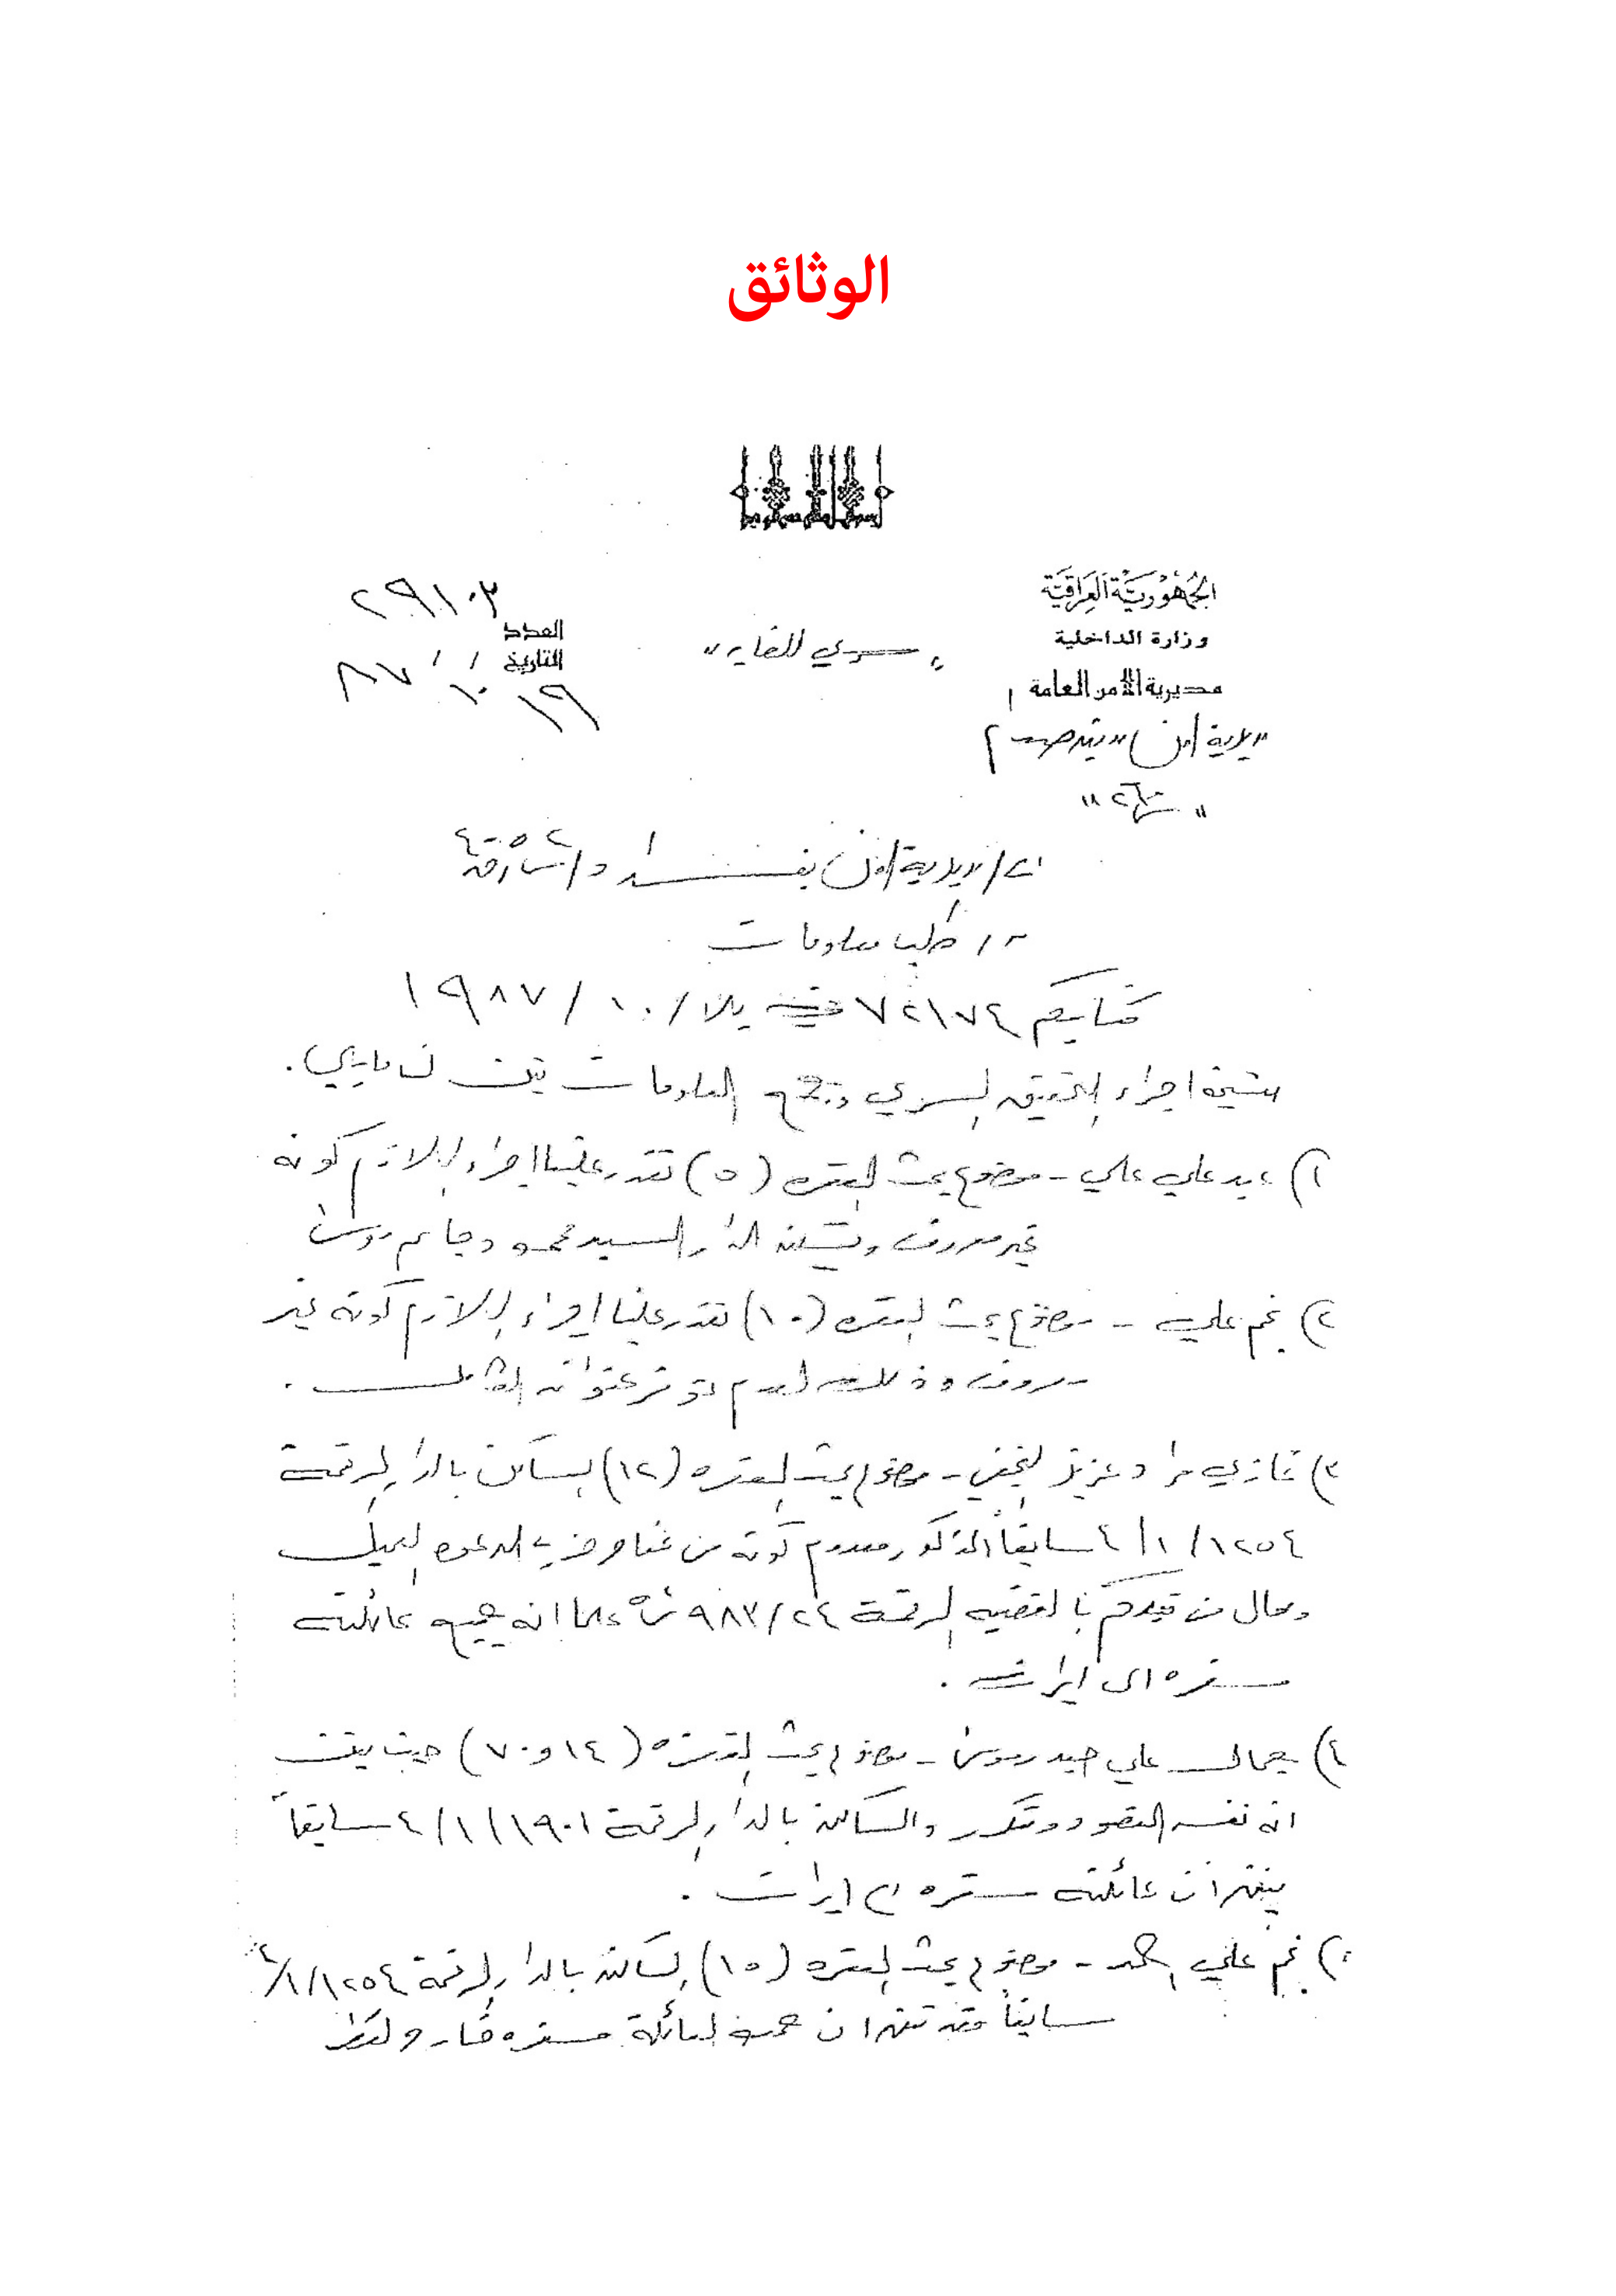 الوثائق
الجمهورية العراقية
وزارة الداخلية
مديرية الأمن العامة
مديرية أمن مدينة صدام
سري للغاية
العدد ٢٩١٠٣
التاريخ ١٩ / ١٠ / ٨٧
الى / مديرية أمن بغداد /
م / طلب معلومات
كتابكم ٧٢١٧٤ في / ١٠ / ١٩٨٧
نتيجة اجراء التحقيق السري وجمع المعلومات تبين لنا مايلي .
١) عبد علي علي - موضوع بحث الفقره (٥) تعذر علينا اجراء اللازم كونه
غير معروف وتسكن الدار السيد محمود جاسم
٢) نجم علي - موضوع بحث الفقره (١٠) تعذر علينا اجراء اللازم كونه غير
معروف وذلك لعدم توفر عنوانه الكامل .
٣) غازي مراد عزيز - موضوع بحث الفقره (١٢) يسكن بالدار المرقمة
١٢٥٤ / ١ / ٤ سابقاً المذكور معدوم كونه من عناصر حزب الدعوه العميل
ومحال من قبلكم بالقضيه المرقمة ٢٤ / ٩٨٣ علما انه جميع عائلته
مسفره الى ايران .
٤) جمال علي حيدر - موضوع بحث الفقره (١٤ و ٧٠) حيث تبين
انه نفس المقصود ومتكرر والساكن بالدار المرقمة ١٩٠١ / ١ / ٤ سابقاً
ان عائلته مسفره الى ايران .
٥) نجم علي احمد - موضوع بحث الفقره (١٥) الساكن بالدار المرقمة ١٢٥٤ / ١ / ٤
سابقاً فقد ان جميع العائلة مسفره خارج القطر